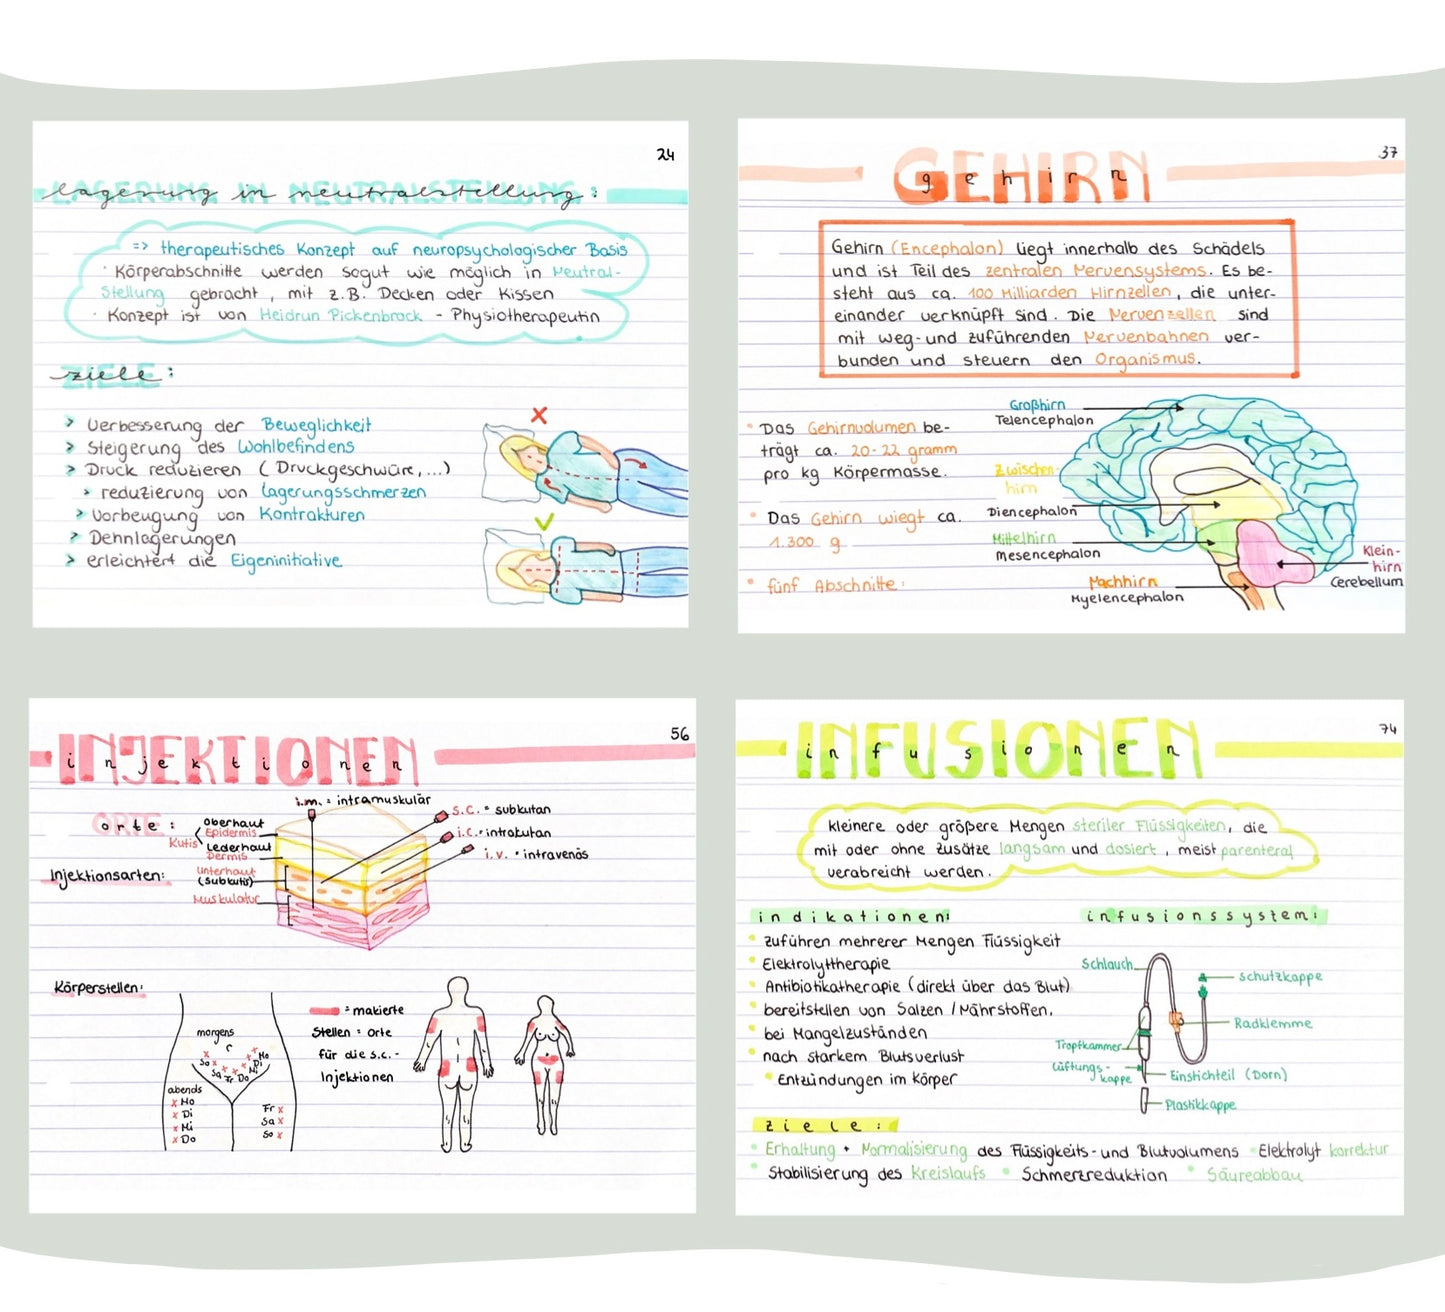 24
Lagerung in Neutralstellung:
=> therapeutisches Konzept auf neuropsychologischer Basis
· Körperabschnitte werden sogut wie möglich in Neutral-
Stellung gebracht, mit z.B. Decken oder Kissen
· Konzept ist von Heidrun Pickenbrock - Physiotherapeutin
Ziele:
> Verbesserung der Beweglichkeit
> Steigerung des Wohlbefindens
> Druck reduzieren (Druckgeschwüre,...)
> reduzierung von Lagerungsschmerzen
> Vorbeugung von Kontrakturen
> Dehnlagerungen
> erleichtert die Eigeninitiative
37
GEHIRN
gehirn
Gehirn (Encephalon) liegt innerhalb des Schädels
und ist Teil des zentralen Nervensystems. Es be-
steht aus ca. 100 Milliarden Hirnzellen, die unter-
einander verknüpft sind. Die Nervenzellen sind
mit weg- und zuführenden Nervenbahnen ver-
bunden und steuern den Organismus.
· Das Gehirnvolumen be-
trägt ca. 20-22 gramm
pro kg Körpermasse.
· Das Gehirn wiegt ca.
1.300 g
· fünf Abschnitte:
Großhirn
Telencephalon
Zwischen-
hirn
Diencephalon
Mittelhirn
Mesencephalon
Nachhirn
Myelencephalon
Klein-
hirn
Cerebellum
56
INJEKTIONEN
injektionen
orte:
Injektionsarten:
i.m. = intramuskulär
s.c. = subkutan
i.c. = intrakutan
i.v. = intravenös
Oberhaut
Epidermis
Kutis
Lederhaut
Dermis
Unterhaut
(Subkutis)
Muskulatur
Körperstellen:
morgens
So
Sa
Fr
Do
Mi
Di
Mo
abends
x Mo
x Di
x Mi
x Do
Fr x
Sa x
So x
= makierte
Stellen = Orte
für die s.c.-
Injektionen
74
INFUSIONEN
infusionen
kleinere oder größere Mengen steriler Flüssigkeiten, die
mit oder ohne Zusätze langsam und dosiert, meist parenteral
verabreicht werden.
indikationen:
· zuführen mehrerer Mengen Flüssigkeit
· Elektrolyttherapie
· Antibiotikatherapie (direkt über das Blut)
· bereitstellen von Salzen / Nährstoffen,
· bei Mangelzuständen
· nach starkem Blutsverlust
· Entzündungen im Körper
infusionssystem:
Schlauch
Schutzkappe
Radklemme
Tropfkammer
Lüftungs-
kappe
Einstichteil (Dorn)
Plastikkappe
ziele:
· Erhaltung + Normalisierung des Flüssigkeits- und Blutvolumens · Elektrolyt korrektur
· Stabilisierung des Kreislaufs · Schmerzreduktion · Säureabbau